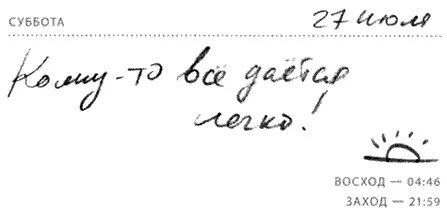 СУББОТА
27 июля
Кому-то всё даётся
легко!
ВОСХОД — 04:46
ЗАХОД — 21:59